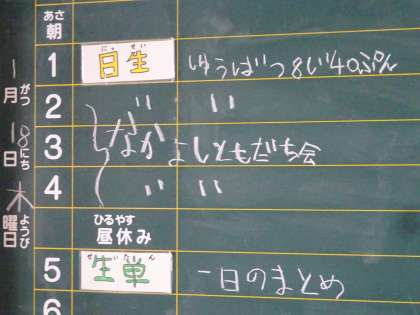 あさ
朝
1月18日木曜日
がつ
にち
ようび
1 日生 しゅうばつ8じ40ぷん
にっせい
2 〃 〃
3 なかよしともだち会
4 〃 〃
ひるやす
昼休み
5 生単 一日のまとめ
せいたん
6